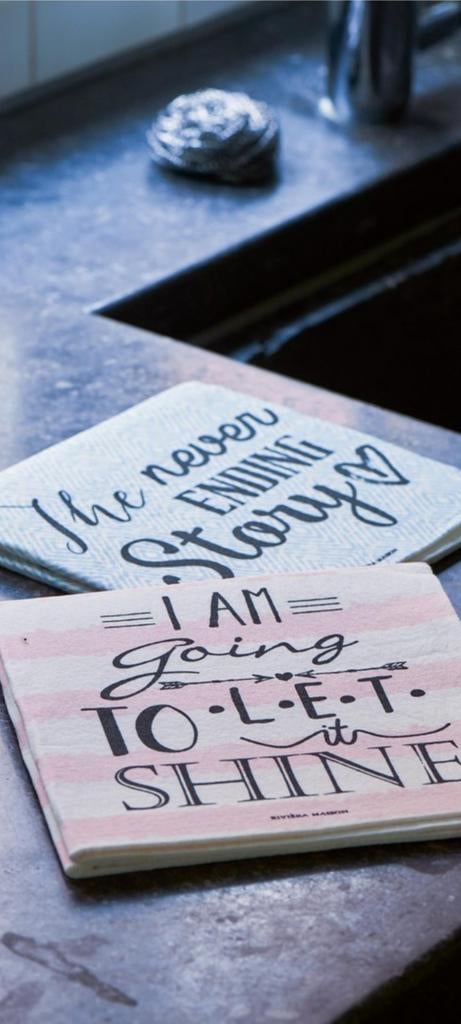 The never
ENDING
Story
I AM
Going
TO•L•E•T•
it
SHINE
RIVIÈRA MAISON